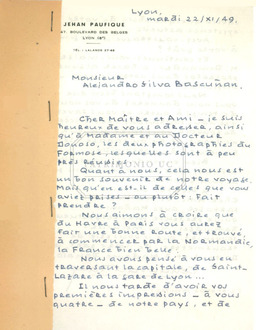 Lyon,
mardi 22/XI/49.
JEHAN PAUFIQUE
BOULEVARD DES BELGES
LYON (6e)
TÉL : LALANDE 27-66
Monsieur
Alejandro Silva Bascuñan.
Cher Maître et Ami - je suis
heureux de vous adresser, ainsi
qu'à Madame et au Docteur
Donoso, les deux photographies du
Formose, lesquelles sont à peu
près réussies.
Quant à nous, cela nous est
un bon souvenir de notre voyage.
Mais qu'en est-il de celles que vous
aviez prises - ou plutôt: fait
prendre ?
Nous aimons à croire que
du Havre à Paris vous aurez
fait une bonne route, et trouvé,
à commencer par la Normandie,
la France bien belle.
Nous avons pensé à vous en
traversant la capitale, de Saint-
Lazare à la gare de Lyon...
Il nous tarde d'avoir vos
premières impressions - à vous
quatre - de notre pays, et de